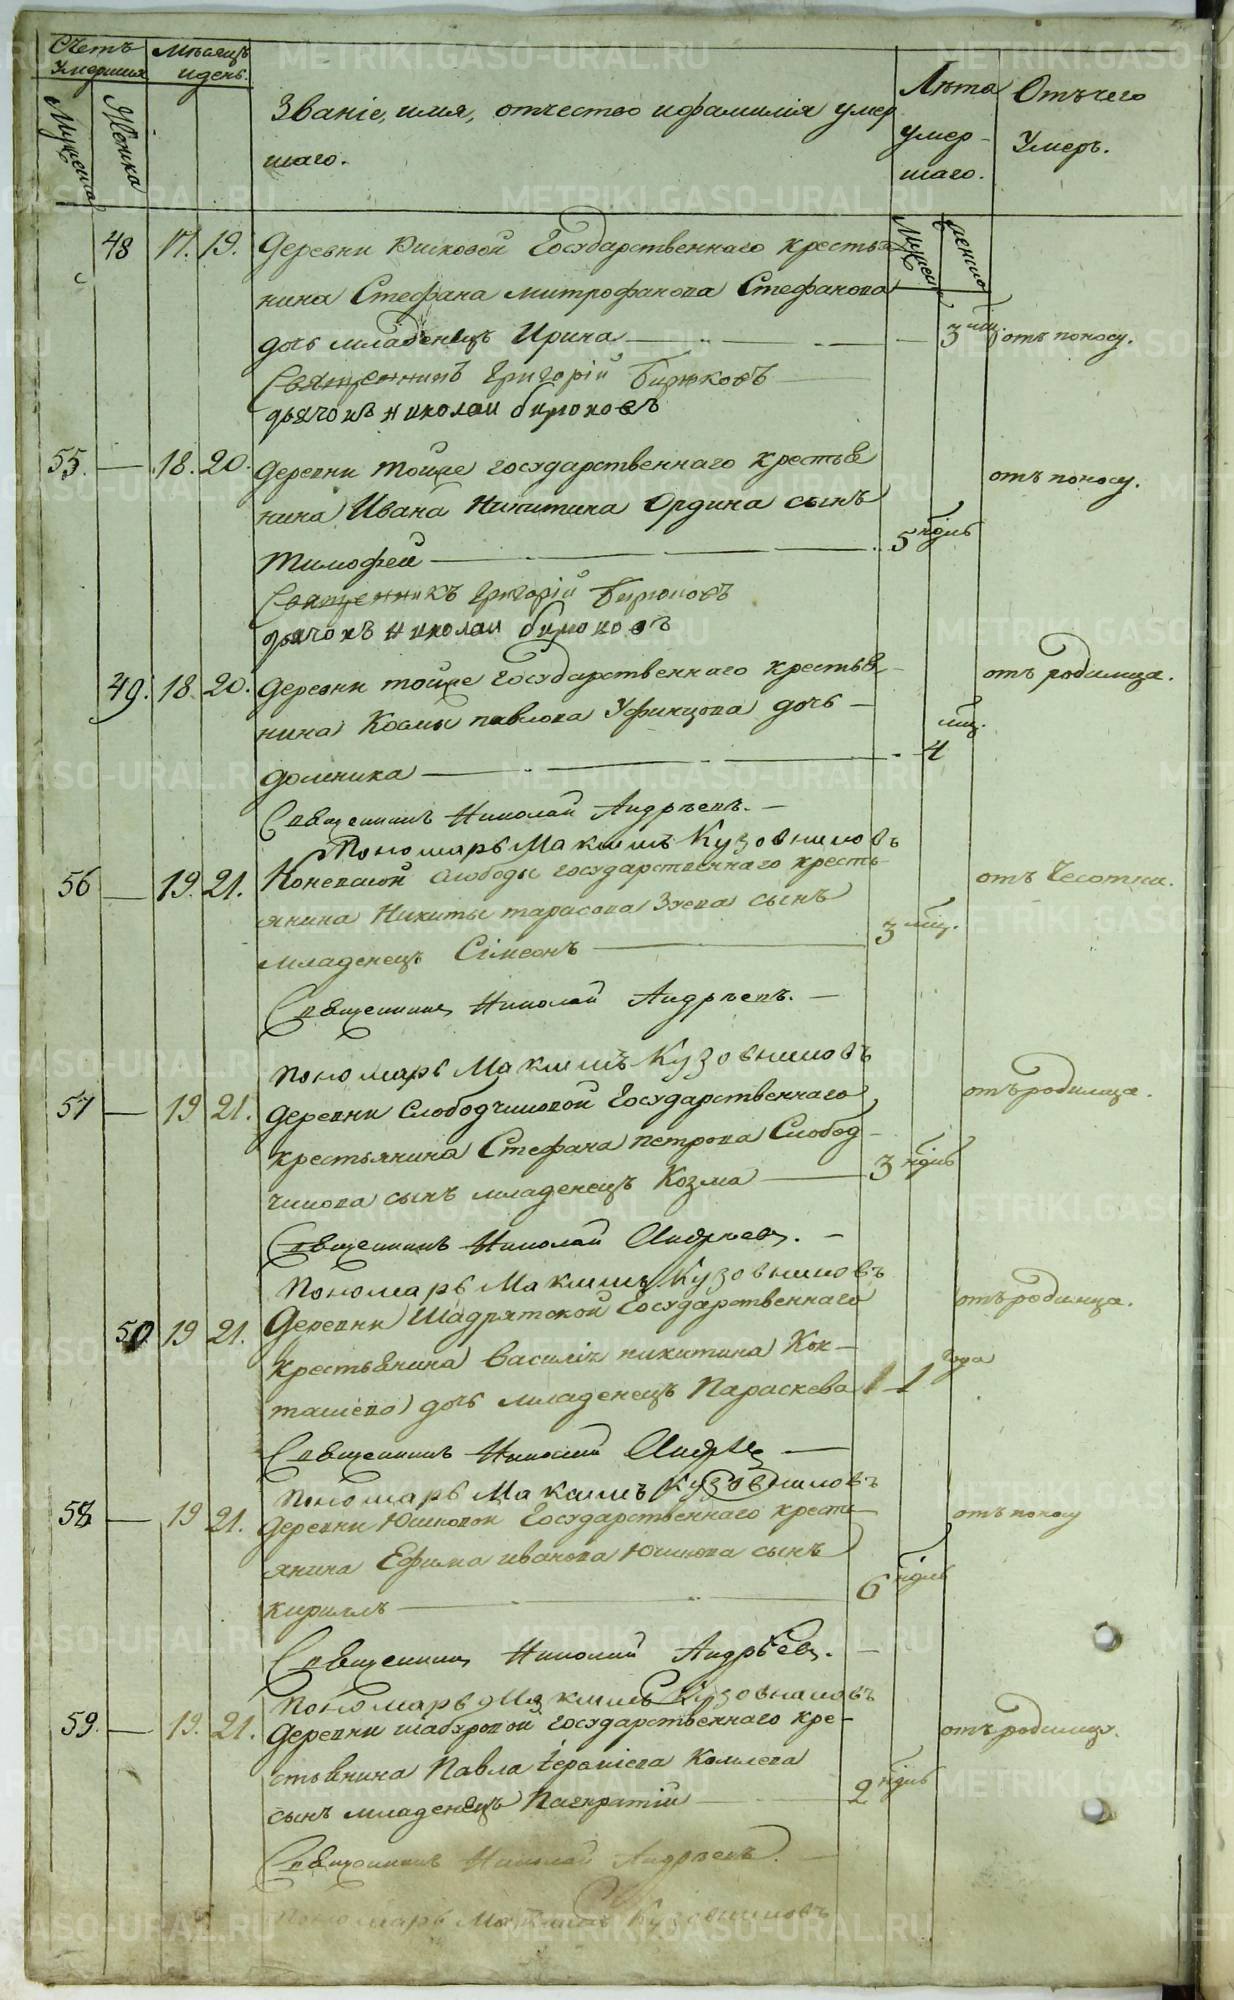 Счетъ умершихъ
Мужеска
Женска
Мѣсяцъ и день.
Званіе, имя, отчество и фамилія умер
шаго.
Лѣта умер-
шаго.
Мужеск
женска
Отъ чего
Умеръ.
48 17. 19. Деревни Юшковой Государственнаго кресть
нина Стефана Митрофанова Стефанова
дочь младенецъ Ирина 3 мц. отъ поносу.
Священникъ Григорій Бирюковъ
дьячокъ Николай бирюковъ
55. 18. 20. Деревни тойже государственнаго крестья
нина Ивана Никитина Ордина сынъ отъ поносу.
Тимофей 5 ндль
Священникъ Григорій Бирюковъ
дьячокъ Николай бирюковъ
49. 18. 20. Деревни тойже Государственнаго крестья- отъ родимца.
нина Козмы павлова Уфинцова дочь -
домника 4 мц.
Священникъ Николай Андреевъ. -
Пономарь Максимъ Кузовниковъ
56 19. 21. Коневской слободы государственнаго кресть- отъ Чесотки.
янина Никиты тарасова Зуева сынъ
младенецъ Сімеонъ 3 мц.
Священникъ Николай Андреевъ. -
Пономарь Максимъ Кузовниковъ
57 19 21. Деревни Слободчиковой Государственнаго отъ родимца.
крестьянина Стефана петрова Слобод-
чикова сынъ младенецъ Козма 3 ндль
Священникъ Николай Андреевъ. -
Пономарь Максимъ Кузовниковъ
50 19 21. Деревни Шадрятской Государственнаго отъ родимца.
крестьянина Василія никитина Кок-
ташева дочь младенецъ Параскева 1 года
Священникъ Николай
Пономарь Максимъ Кузовниковъ
58 19 21. Деревни Юшковой Государственнаго крестъ- отъ поносу
янина Ефима иванова Юшкова сынъ
кириллъ 6 ндль
Священникъ Николай Андреевъ. -
Пономарь Максимъ Кузовниковъ
59. 19. 21. Деревни шабуровой государственнаго кре- отъ родимца.
стьянина Павла Комлева
сынъ младенецъ Панкратій 2 ндль
Священникъ Николай Андреевъ. -
Пономарь Максимъ Кузовниковъ
METRIKI.GASO-URAL.RU